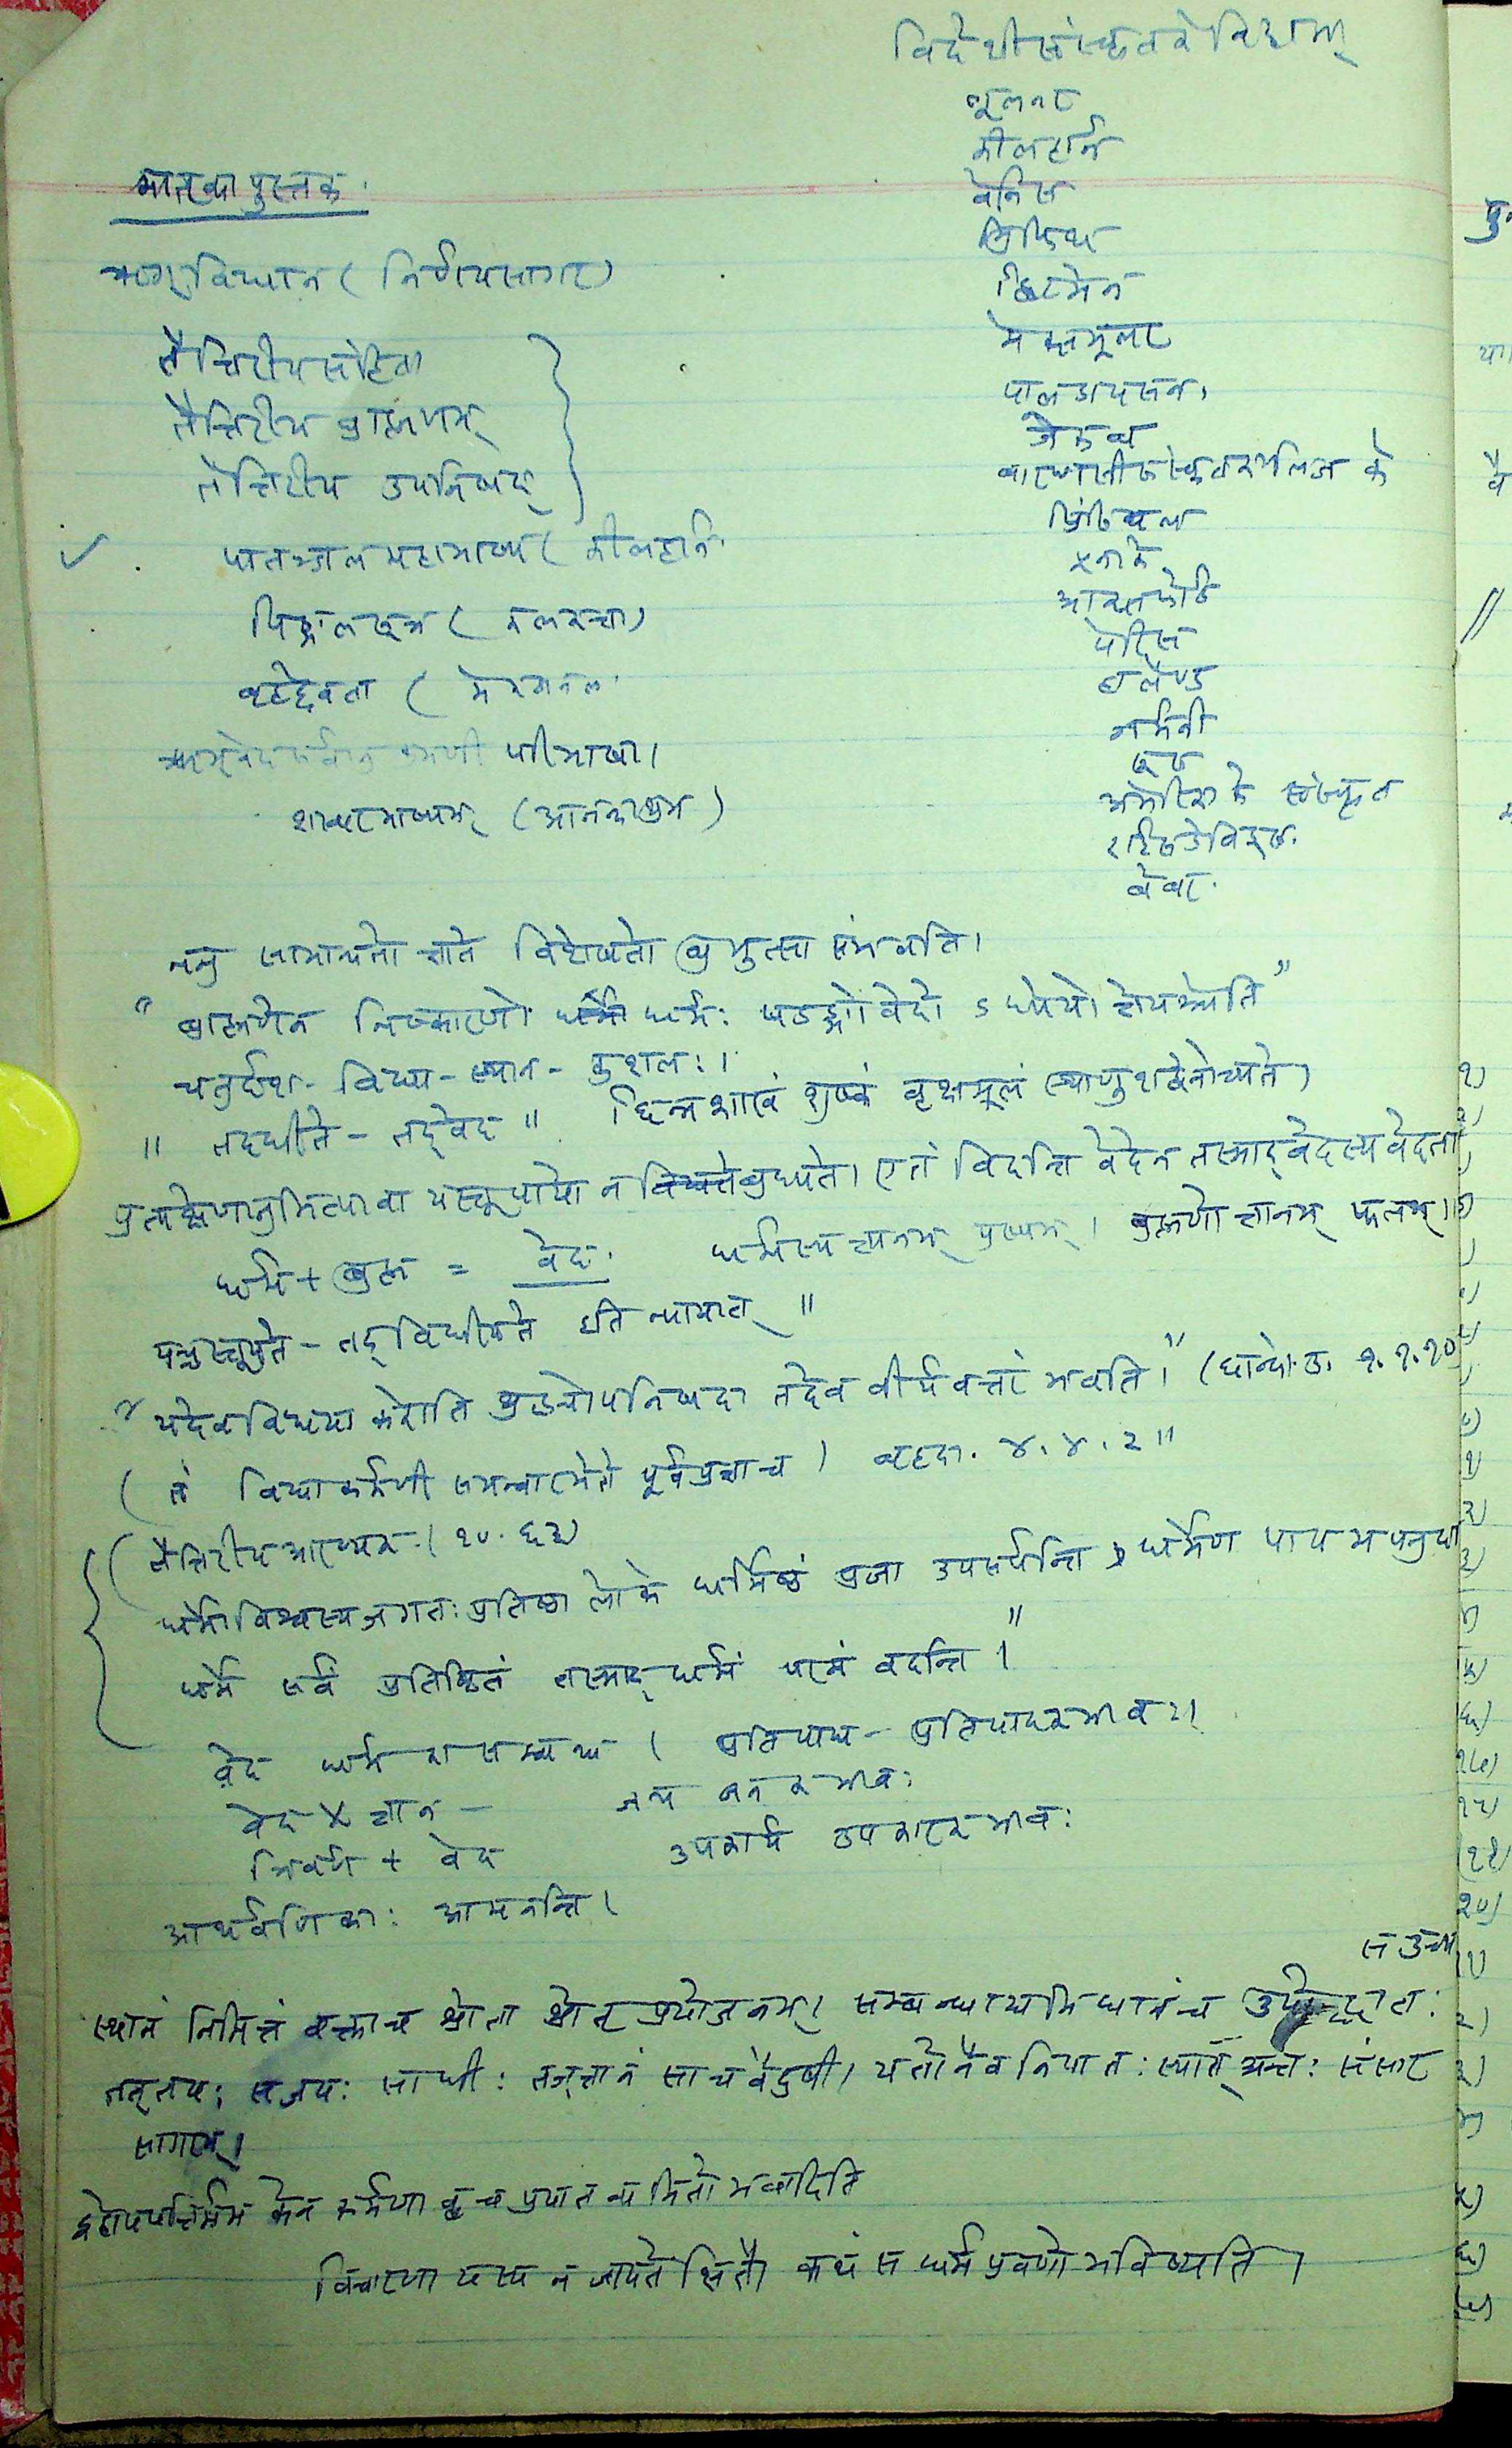 विदेशी संस्कृत के विद्वान्
बूलनर
कीलहार्न
वेनिस
ग्रिफिथ
व्हिटमेन
मेक्समूलर
पाल डायसन
जेकब
वाराणसी संस्कृत कालिज के
प्रिंसिपल
आक्सफोर्ड
पेरिस
इंग्लैण्ड
जर्मनी
रूस
अमेरिका के संस्कृत
राईस डेविड्स.
वेबर.
मातृका पुस्तक.
ऋग्विधान ( निर्णयसागर)
तैत्तिरीय संहिता
तैत्तिरीय ब्राह्मणम्
तैत्तिरीय उपनिषद्
पातञ्जल महाभाष्य ( कीलहार्न.
पिङ्गलसूत्र ( कलकत्ता)
बृहद्देवता ( मेकडानल.
ऋग्वेद सर्वानुक्रमणी परिभाषा।
शाबरभाष्यम् (आनन्दाश्रम )
ननु सामान्यतो ज्ञाते विशेषतो बुभुत्सा संभवति।
" ब्राह्मणेन निष्कारणो धर्मः षडङ्गो वेदो ऽ ध्येयो ज्ञेयश्चेति"
चतुर्दश - विद्या - स्थान - कुशलः।
" तदधीते - तद्वेद " छिन्नशाखं शुष्कं वृक्षमूलं स्थाणुशब्देनोच्यते)
प्रत्यक्षेणानुमित्या वा यस्तूपायो न बुध्यते। एतं विदन्ति वेदेन तस्माद् वेदस्य वेदता
धर्म + ब्रह्म = वेद. धर्मस्य ज्ञानम् पुष्पम्। ब्रह्मणो ज्ञानम् फलम्।
यत्स्तूयते - तद् विधीयते इति न्यायात् ॥
" यदेव विद्यया करोति श्रद्धयोपनिषदा तदेव वीर्यवत्तरं भवति।" (छान्दो. उ. १.१.१०
( तं विद्याकर्मणी समन्वारभेते पूर्वप्रज्ञा च ) बृहदा. ४.४.२"
( तैत्तिरीय आरण्यक. ( १०.६३)
धर्मो विश्वस्य जगतः प्रतिष्ठा लोके धर्मिष्ठं प्रजा उपसर्पन्ति धर्मेण पापमपनुद
धर्मे सर्वं प्रतिष्ठितं तस्माद् धर्मं परमं वदन्ति।"
वेद धर्म का सम्बन्ध । प्रतिपाद्य - प्रतिपादकभावः।
वेद x ज्ञान - जन्य जनकभावः
त्रिवर्ण + वेद उपकार्य उपकारकभावः
आथर्वणिकाः आमनन्ति।
स उच्य
स्थानं निमित्तं वक्ता च श्रोता श्रोतृ प्रयोजनम्। सम्बन्धाद्यभिधानं च उपोद्घातः
तत् तपः स जपः सा धीः तज्ज्ञानं सा च वैदुषी। यतो नैव निपातः स्यात् अन्तः संसार
सागरम्।
केन कर्मणा क्व च प्रयातव्यमितो भवादिति
विचारणा यस्य न जायते क्षितौ कथं स धर्मप्रवणो भविष्यति।